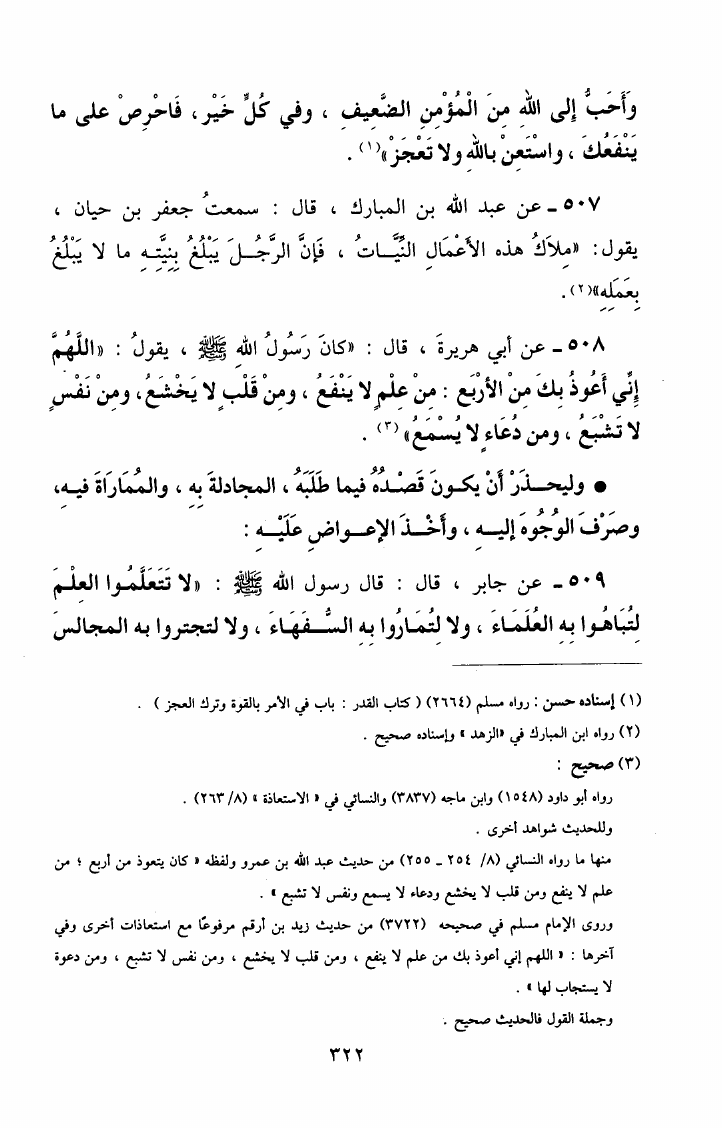 وَأَحَبُّ إلى اللهِ مِنَ الْمُؤْمِنِ الضَّعِيفِ ، وفي كُلٍّ خَيْر ، فَاحْرِصْ على ما
يَنْفَعُكَ ، واسْتَعِنْ بالله ولا تَعْجَزْ»(١) .
٥٠٧ ـ عن عبد الله بن المبارك ، قال : سمعتُ جعفر بن حيان ،
يقول: «مِلاَكُ هذه الأَعْمَالِ النِّيَّـاتُ ، فَإنَّ الرَّجُـلَ يَبْلُغُ بِنِيَّتِـهِ ما لا يَبْلُغُ
بِعَمَلِهِ»(٢).
٥٠٨ ـ عن أبي هريرةَ ، قال : «كانَ رَسُولُ اللهِ ﷺ ، يقولُ : «اللَّهُمَّ
إنِّي أَعُوذُ بِكَ مِنْ الأرْبَعِ : مِنْ عِلْمٍ لا يَنْفَعُ ، ومِنْ قَلْبٍ لا يَخْشَعُ، ومِنْ نَفْسٍ
لا تَشْبَعُ ، ومن دُعَاءٍ لا يُسْمَعُ»(٣) .
● وليحـذَرْ أَنْ يكـونَ قَصْـدُهُ فيما طَلَبَهُ ، المجادلةَ بِهِ ، والمُمَارَاةَ فيـهِ،
وصَرْفَ الوُجُوهَ إليـهِ ، وأَخْـذَ الإعـواضِ عَلَيْـهِ :
٥٠٩ ـ عن جابر ، قال : قال رسول الله ﷺ : «لا تَتَعَلَّمُـوا العِلْـمَ
لِتُبَاهُـوا بِهِ العُلَمَـاءَ ، ولا لِتُمَارُوا بِهِ السُّـفَهَـاءَ ، ولا لتجتروا به المجالسَ
(١) إسناده حسن : رواه مسلم (٢٦٦٤) ( كتاب القدر : باب في الأمر بالقوة وترك العجز ) .
(٢) رواه ابن المبارك في «الزهد » وإسناده صحيح .
(٣) صحيح :
رواه أبو داود (١٥٤٨) وابن ماجه (٣٨٣٧) والنسائي في « الاستعاذة » (٨/ ٢٦٣) .
وللحديث شواهد أخرى .
منها ما رواه النسائي (٨/ ٢٥٤ ـ ٢٥٥) من حديث عبد الله بن عمرو ولفظه « كان يتعوذ من أربع ؛ من
علم لا ينفع ومن قلب لا يخشع ودعاء لا يسمع ونفس لا تشبع » .
وروى الإمام مسلم في صحيحه (٣٧٢٢) من حديث زيد بن أرقم مرفوعًا مع استعاذات أخرى وفي
آخرها : « اللهم إني أعوذ بك من علم لا ينفع ، ومن قلب لا يخشع ، ومن نفس لا تشبع ، ومن دعوة
لا يستجاب لها » .
وجملة القول فالحديث صحيح .
٣٢٢